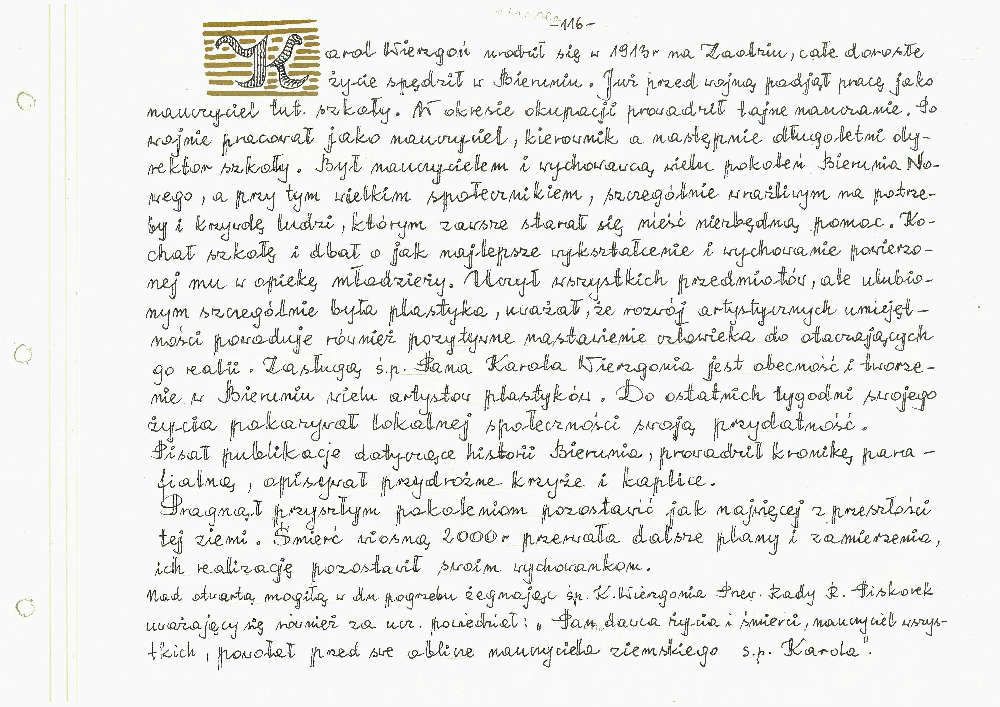 -116-
Karol Wierzgoń urodził się w 1913r na Zaolziu, całe dorosłe
życie spędził w Bieruniu. Już przed wojną podjął pracę jako
nauczyciel tut. szkoły. W okresie okupacji prowadził tajne nauczanie. Po
wojnie pracował jako nauczyciel, kierownik a następnie długoletni dy-
rektor szkoły. Był nauczycielem i wychowawcą wielu pokoleń Bierunia No-
wego, a przy tym wielkim społecznikiem, szczególnie wrażliwym na potrze-
by i krzywdę ludzi, którym zawsze starał się nieść niezbędną pomoc. Ko-
chał szkołę i dbał o jak najlepsze wykształcenie i wychowanie powierzo-
nej mu w opiekę młodzieży. Uczył wszystkich przedmiotów, ale ulubio-
nym szczególnie była plastyka, uważał, że rozwój artystycznych umiejęt-
ności powoduje również pozytywne nastawienie człowieka do otaczających
go realii. Zasługą ś.p. Pana Karola Wierzgonia jest obecność i tworze-
nie w Bieruniu wielu artystów plastyków. Do ostatnich tygodni swojego
życia pokazywał lokalnej społeczności swoją przydatność.
Pisał publikacje dotyczące historii Bierunia, prowadził kronikę para-
fialną, opisywał przydrożne krzyże i kaplice.
Pragnął przyszłym pokoleniom pozostawić jak najwięcej z przeszłości
tej ziemi. Śmierć wiosną 2000r przerwała dalsze plany i zamierzenia,
ich realizację pozostawił swoim wychowankom.
Nad otwartą mogiłą w dn pogrzebu żegnając śp. K. Wierzgonia Prew. Rady R. Piskorek
uważający się również za ucz. powiedział: „Pan, dawca życia i śmierci, nauczyciel wszys-
tkich, powołał przed swe oblicze nauczyciela ziemskiego ś.p. Karola".